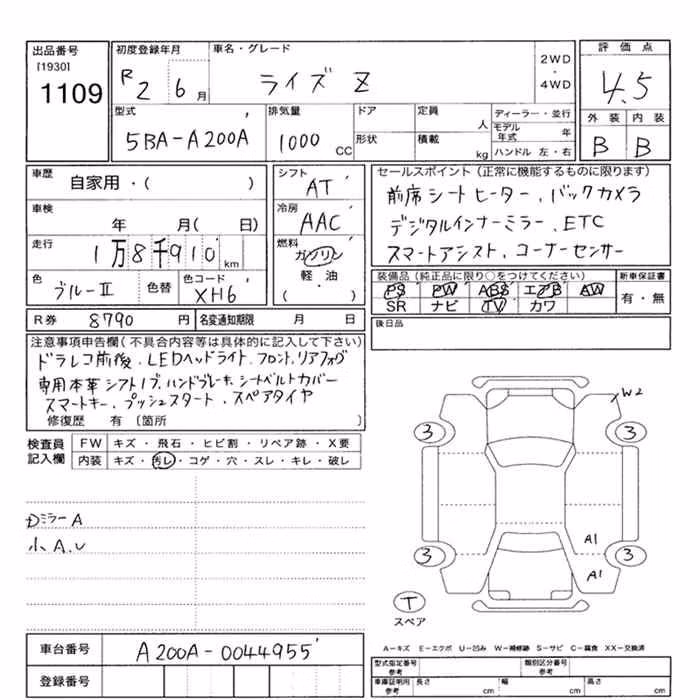 出品番号
[1930]
1109
初度登録年月
R2 6月
車名・グレード
ライズ Z
2WD
・
4WD
評価点
4.5
外装 内装
B B
型式
5BA-A200A
排気量
1000 CC
ドア
形状
定員 人
積載 kg
ディーラー・並行
モデル年式 年
ハンドル 左・右
車歴
自家用・( )
車検
年 月( 日)
走行
1万8千910 km
色
ブルーII
色替
色コード
XH6
シフト
AT
冷房
AAC
燃料
ガソリン
軽・油
( )
セールスポイント(正常に機能するものに限ります)
前席シートヒーター、バックカメラ
デジタルインナーミラー、ETC
スマートアシスト、コーナーセンサー
装備品(純正品に限り○をつけてください)
PS PW ABS エアB AW
SR ナビ TV カワ
新車保証書
有・無
R券 8790 円
名変通知期限 月 日
後日品
注意事項申告欄(不具合内容等は具体的に記入して下さい)
ドラレコ前後、LEDヘッドライト、フロント、リアフォグ
専用本革シフトノブ、ハンドブレーキ、シートベルトカバー
スマートキー、プッシュスタート、スペアタイヤ
修復歴 有 〔箇所 〕
検査員
記入欄
FW キズ・飛石・ヒビ割・リペア跡・X要
内装 キズ・汚レ・コゲ・穴・スレ・キレ・破レ
Dミラー A
小A.U
W2
3 3
3 3
A1
A1
T
スペア
A―キズ E―エクボ U―凹み W―補修跡 S―サビ C―腐食 XX―交換済
車台番号
A200A-0044955
登録番号
型式指定番号
参考
類別区分番号
参考
車庫証明用
参考
長さ cm 幅 cm 高さ cm